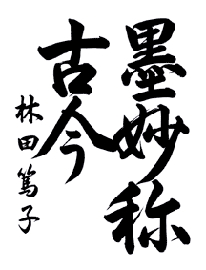 墨妙称
古今
林田篤子